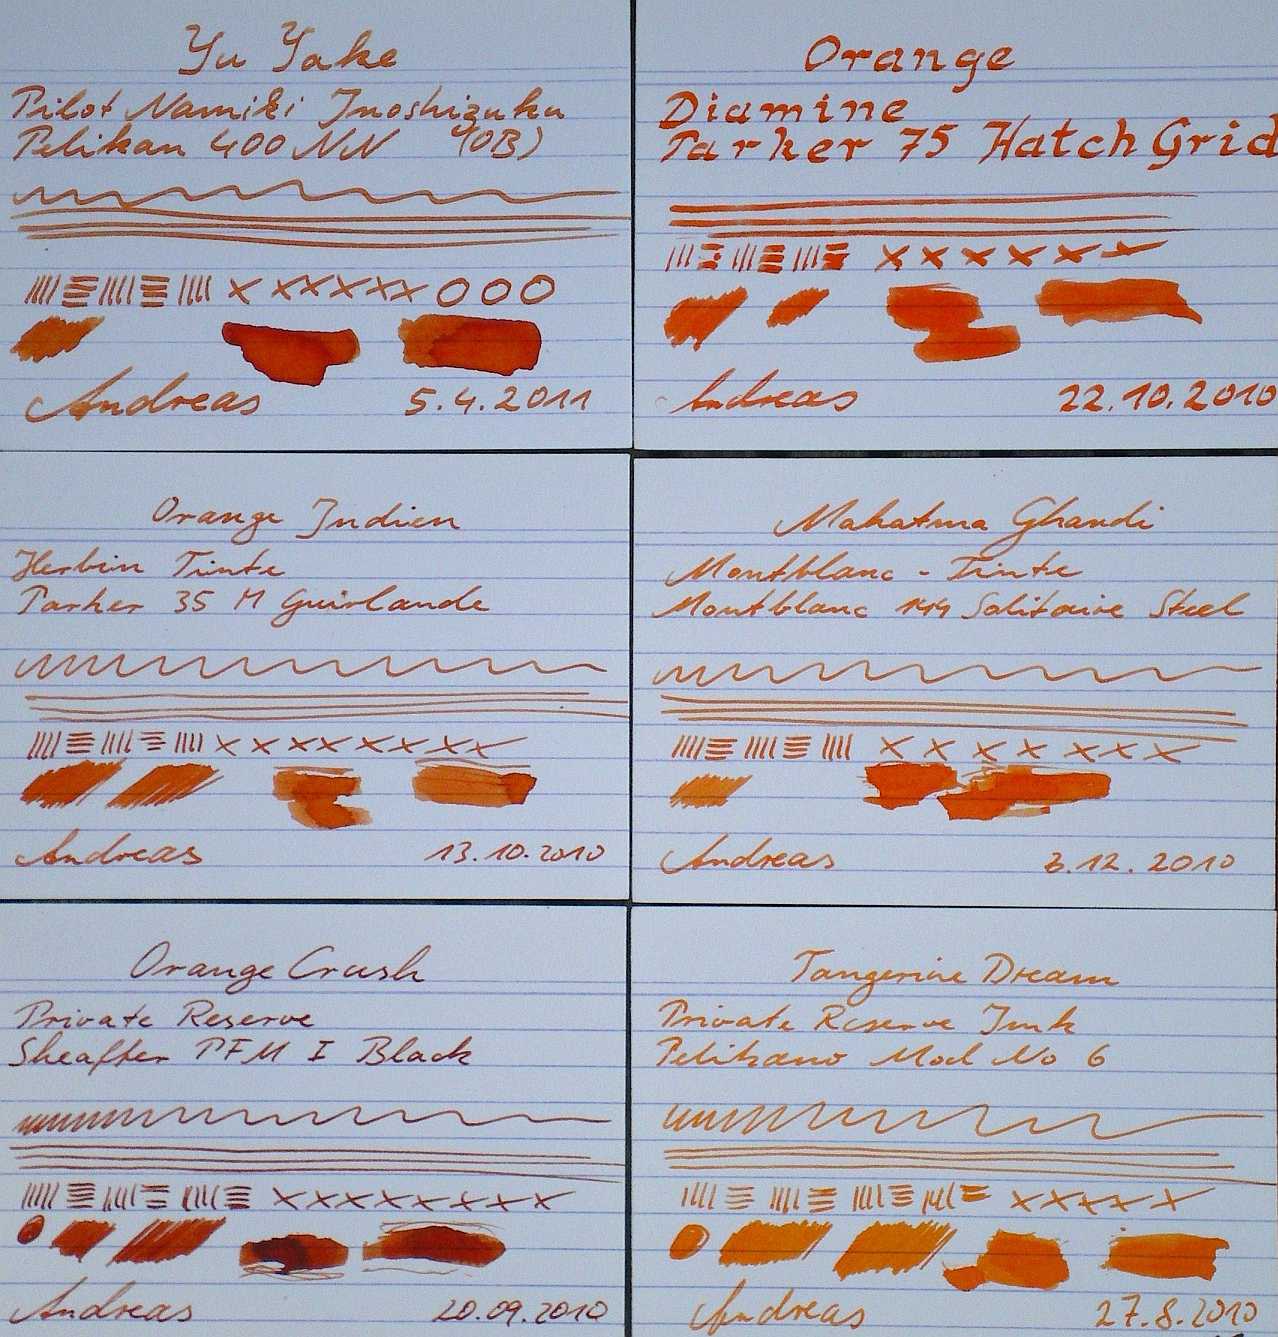 Yu Yake
Pilot Namiki Iroshizuku
Pelikan 400 NN (OB)
Andreas 5.4.2011
Orange
Diamine
Parker 75 Hatch Grid
Andreas 22.10.2010
Orange Indien
Herbin Tinte
Parker 35 M Guirlande
Andreas 13.10.2010
Mahatma Ghandi
Montblanc - Tinte
Montblanc 144 Solitaire Steel
Andreas 3.12.2010
Orange Crush
Private Reserve
Sheaffer PFM I Black
Andreas 20.09.2010
Tangerine Dream
Private Reserve Ink
Pelikano Mod No 6
Andreas 27.8.2010